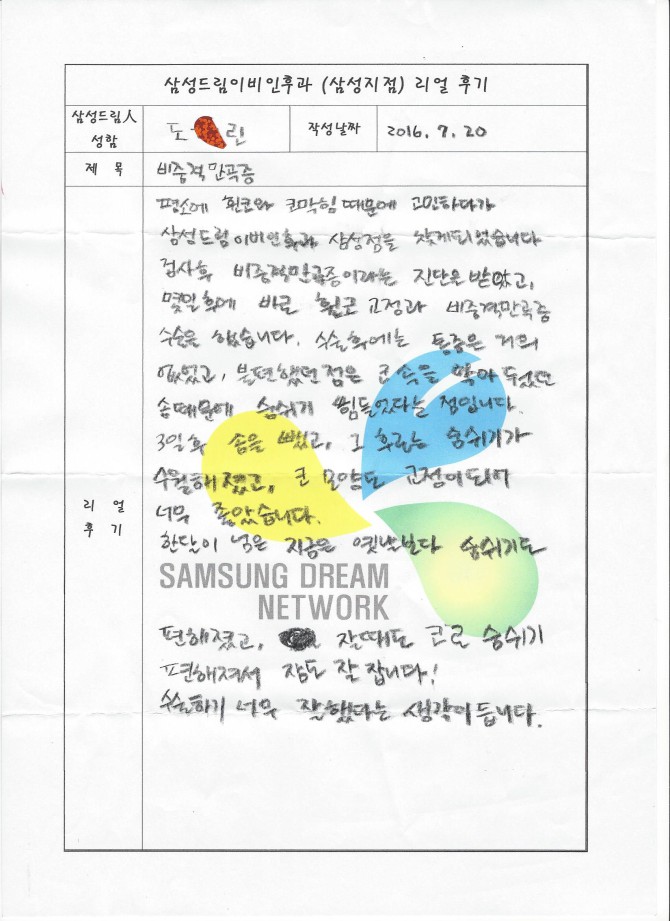 삼성드림이비인후과 (삼성지점) 리얼 후기
삼성드림人
성함
도 린
작성날짜
2016. 7. 20
제 목
비중격만곡증
리 얼
후 기
평소에 휜코와 코막힘 때문에 고민하다가
삼성드림이비인후과 삼성점을 찾게되었습니다
검사후 비중격만곡증이라는 진단은 받았고,
몇일후에 바로 휜코 교정과 비중격만곡증
수술을 했습니다. 수술후에는 통증은 거의
없었고, 불편했던 점은 코 속을 막아 두었던
솜때문에 숨쉬기 힘들었다는 점입니다.
3일후 솜을 뺐고, 그 후로는 숨쉬기가
수월해졌고, 코 모양도 교정이되어
너무 좋았습니다.
한달이 넘은 지금은 옛날보다 숨쉬기도
SAMSUNG DREAM
NETWORK
편해졌고, 잘때도 코로 숨쉬기
편해져서 잠도 잘 잡니다!
수술하기 너무 잘했다는 생각이듭니다.